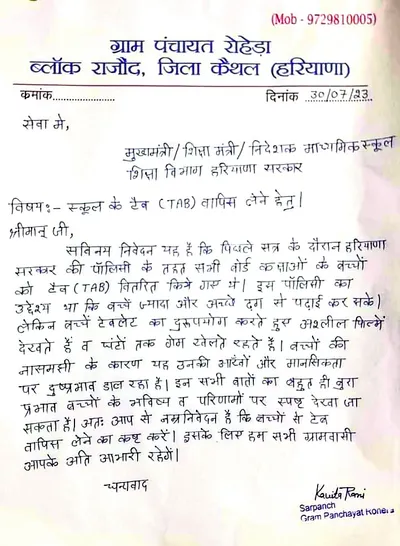 (Mob - 9729810005)
ग्राम पंचायत रोहेड़ा
ब्लॉक राजौद, जिला कैथल (हरियाणा)
क्रमांक.................... दिनांक 30/07/23
सेवा मे,
मुख्यमंत्री/शिक्षा मंत्री/निदेशक माध्यमिक स्कूल
शिक्षा विभाग हरियाणा सरकार
विषय:- स्कूल के टैब (TAB) वापिस लेने हेतु।
श्रीमान् जी,
सविनय निवेदन यह है कि पिछले सत्र के दौरान हरियाणा
सरकार की पॉलिसी के तहत सभी बोर्ड कक्षाओं के बच्चों
को टैब (TAB) वितरित किये गए थे। इस पॉलिसी का
उद्देश्य था कि बच्चें ज्यादा और अच्छे ढंग से पढ़ाई कर सके।
लेकिन बच्चें टेबलेट का दुरूपयोग करते हुए अश्लील फिल्में
देखते हैं व घंटों तक गेम खेलते रहते हैं। बच्चों की
नासमझी के कारण यह उनकी आँखों और मानसिकता
पर दुष्प्रभाव डाल रहा है। इन सभी बातों का बहुत ही बुरा
प्रभाव बच्चों के भविष्य व परिणामों पर स्पष्ट देखा जा
सकता है। अतः आप से नम्र निवेदन है कि बच्चों से टैब
वापिस लेने का कष्ट करें। इसके लिए हम सभी ग्रामवासी
आपके अति आभारी रहेगें।
धन्यवाद
Kavita Rani
Sarpanch
Gram Panchayat